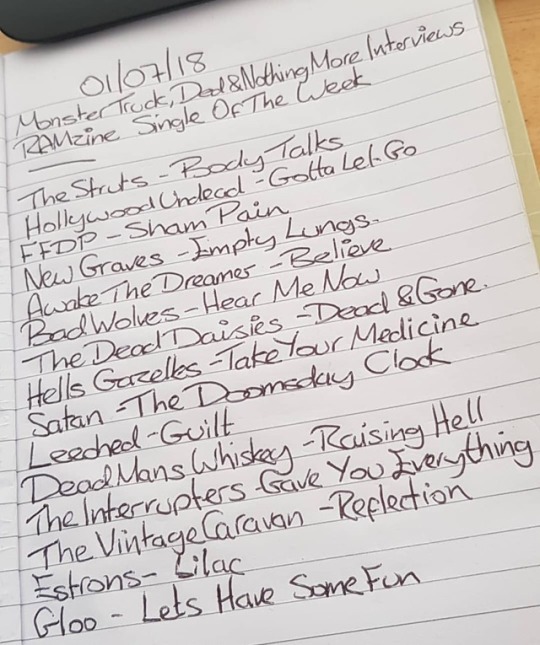 01/07/18
Monster Truck, Ded & Nothing More Interviews
RAMzine Single Of The Week
The Struts - Body Talks
Hollywood Undead - Gotta Let Go
FFDP - Sham Pain
New Graves - Empty Lungs.
Awake The Dreamer - Believe
Bad Wolves - Hear Me Now
The Dead Daisies - Dead & Gone.
Hells Gazelles - Take Your Medicine
Satan - The Doomsday Clock
Leeched - Guilt
Dead Mans Whiskey - Raising Hell
The Interrupters - Gave You Everything
The Vintage Caravan - Reflection
Estrons - Lilac
Gloo - Lets Have Some Fun